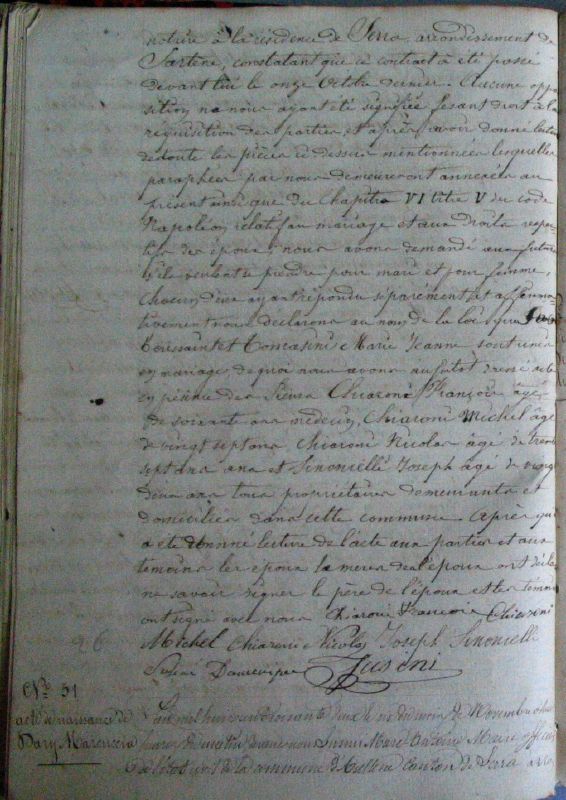 notaire à la résidence de Serra arrondissement de
Sartene, constatant que ce contract a été passé
devant lui le onze Octobre dernier. Aucune oppo
sition ne nous ayant été signifiée fesant droit à la
réquisition des parties et après avoir donné lecture
de toute les pièces ci dessus mentionnées lesquelles
paraphées par nous demeureront annexées au
présent ainsi que du Chapitre VI titre V du code
Napoléon relatif au mariage et aux droits respec
tifs des époux, nous avons demandé aux futurs
s'ils veulent se prendre pour mari et pour femme,
Chacun d'eux ayant répondu séparément et affirma
tivement nous déclarons au nom de la loi que
Toussaint et Tomasini Marie Jeanne sont unis
en mariage de quoi nous avons aussitot dressé acte
en présence des Sieurs Chiaroni François âgé
de soixante ans médecin, Chiaroni Michel âgé
de vingt sept ans Chiaroni Nicolas âgé de trente
sept ans et Simonielli Joseph âgé de vingt
deux ans tous propriétaires demeurants et
domiciliés dans cette commune. Après qu'il
a été donné lecture de l'acte aux parties et aux
témoins les époux la mère de l'époux ont déclaré
ne savoir signer le père de l'époux et les témoins
ont signé avec nous Chiaroni François Chiaroni
Michel Chiaroni Nicolas Joseph Simonielli
Susini
N° 51
acte de naissance de
L'an mil huit cent soixante deux le six du mois de Novembre à
heures du matin devant nous Susini Marc Antoine Maire officier
de l'état civil de la commune de canton de Serra